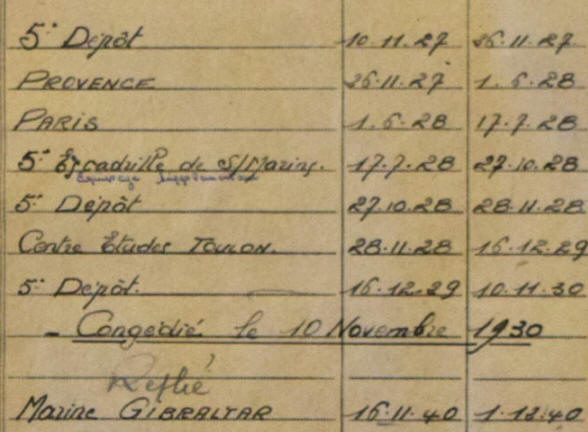 5e Dépôt 10.11.27 26.11.27
PROVENCE 26.11.27 1.6.28
PARIS 1.6.28 17.7.28
5e Escadrille de S/Marins. 17.7.28 27.10.28
Equipage supplémentaire
5e Dépôt 27.10.28 28.11.28
Centre Études TOULON. 28.11.28 16.12.29
5e Dépôt. 16.12.29 10.11.30
- Congédié le 10 Novembre 1930
Marine GIBRALTAR 16.11.40 1.12.40